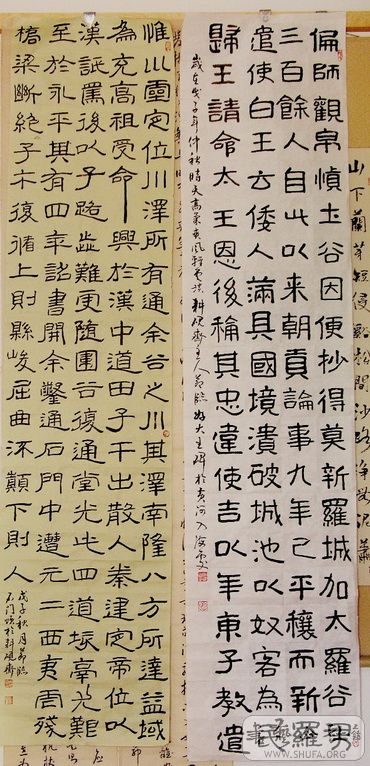 山下蘭芽短浸溪松間沙路淨無泥蕭
偏師觀帛慎土谷因便抄得莫新羅城加太羅谷男
三百餘人自此以來朝貢論事九年己平穰而新
遣使白王云倭人滿其國境潰破城池以奴客為
歸王請命太王恩後稱其忠違使告以年東子教遣
歲在戊子年仲秋晴天高氣爽風輕雲淡耕硯齋主人臨好大王碑於黃河入海處
惟川靈定位川澤所有通余谷之川其澤南隆八方所達益域
為充高祖受命興於漢中道由子午出散入秦建定帝位以
漢詆焉後以子路歰難更隨圍谷復通堂光此四道垓鬲尤艱
至於永平其有四年詔書開余鑿通石門中遭元二西夷虐殘
橋梁斷絕子午復循上則縣峻屈曲流顛下則入
戊子秋月臨
石門頌於耕硯齋
WWW.SHUFA.ORG